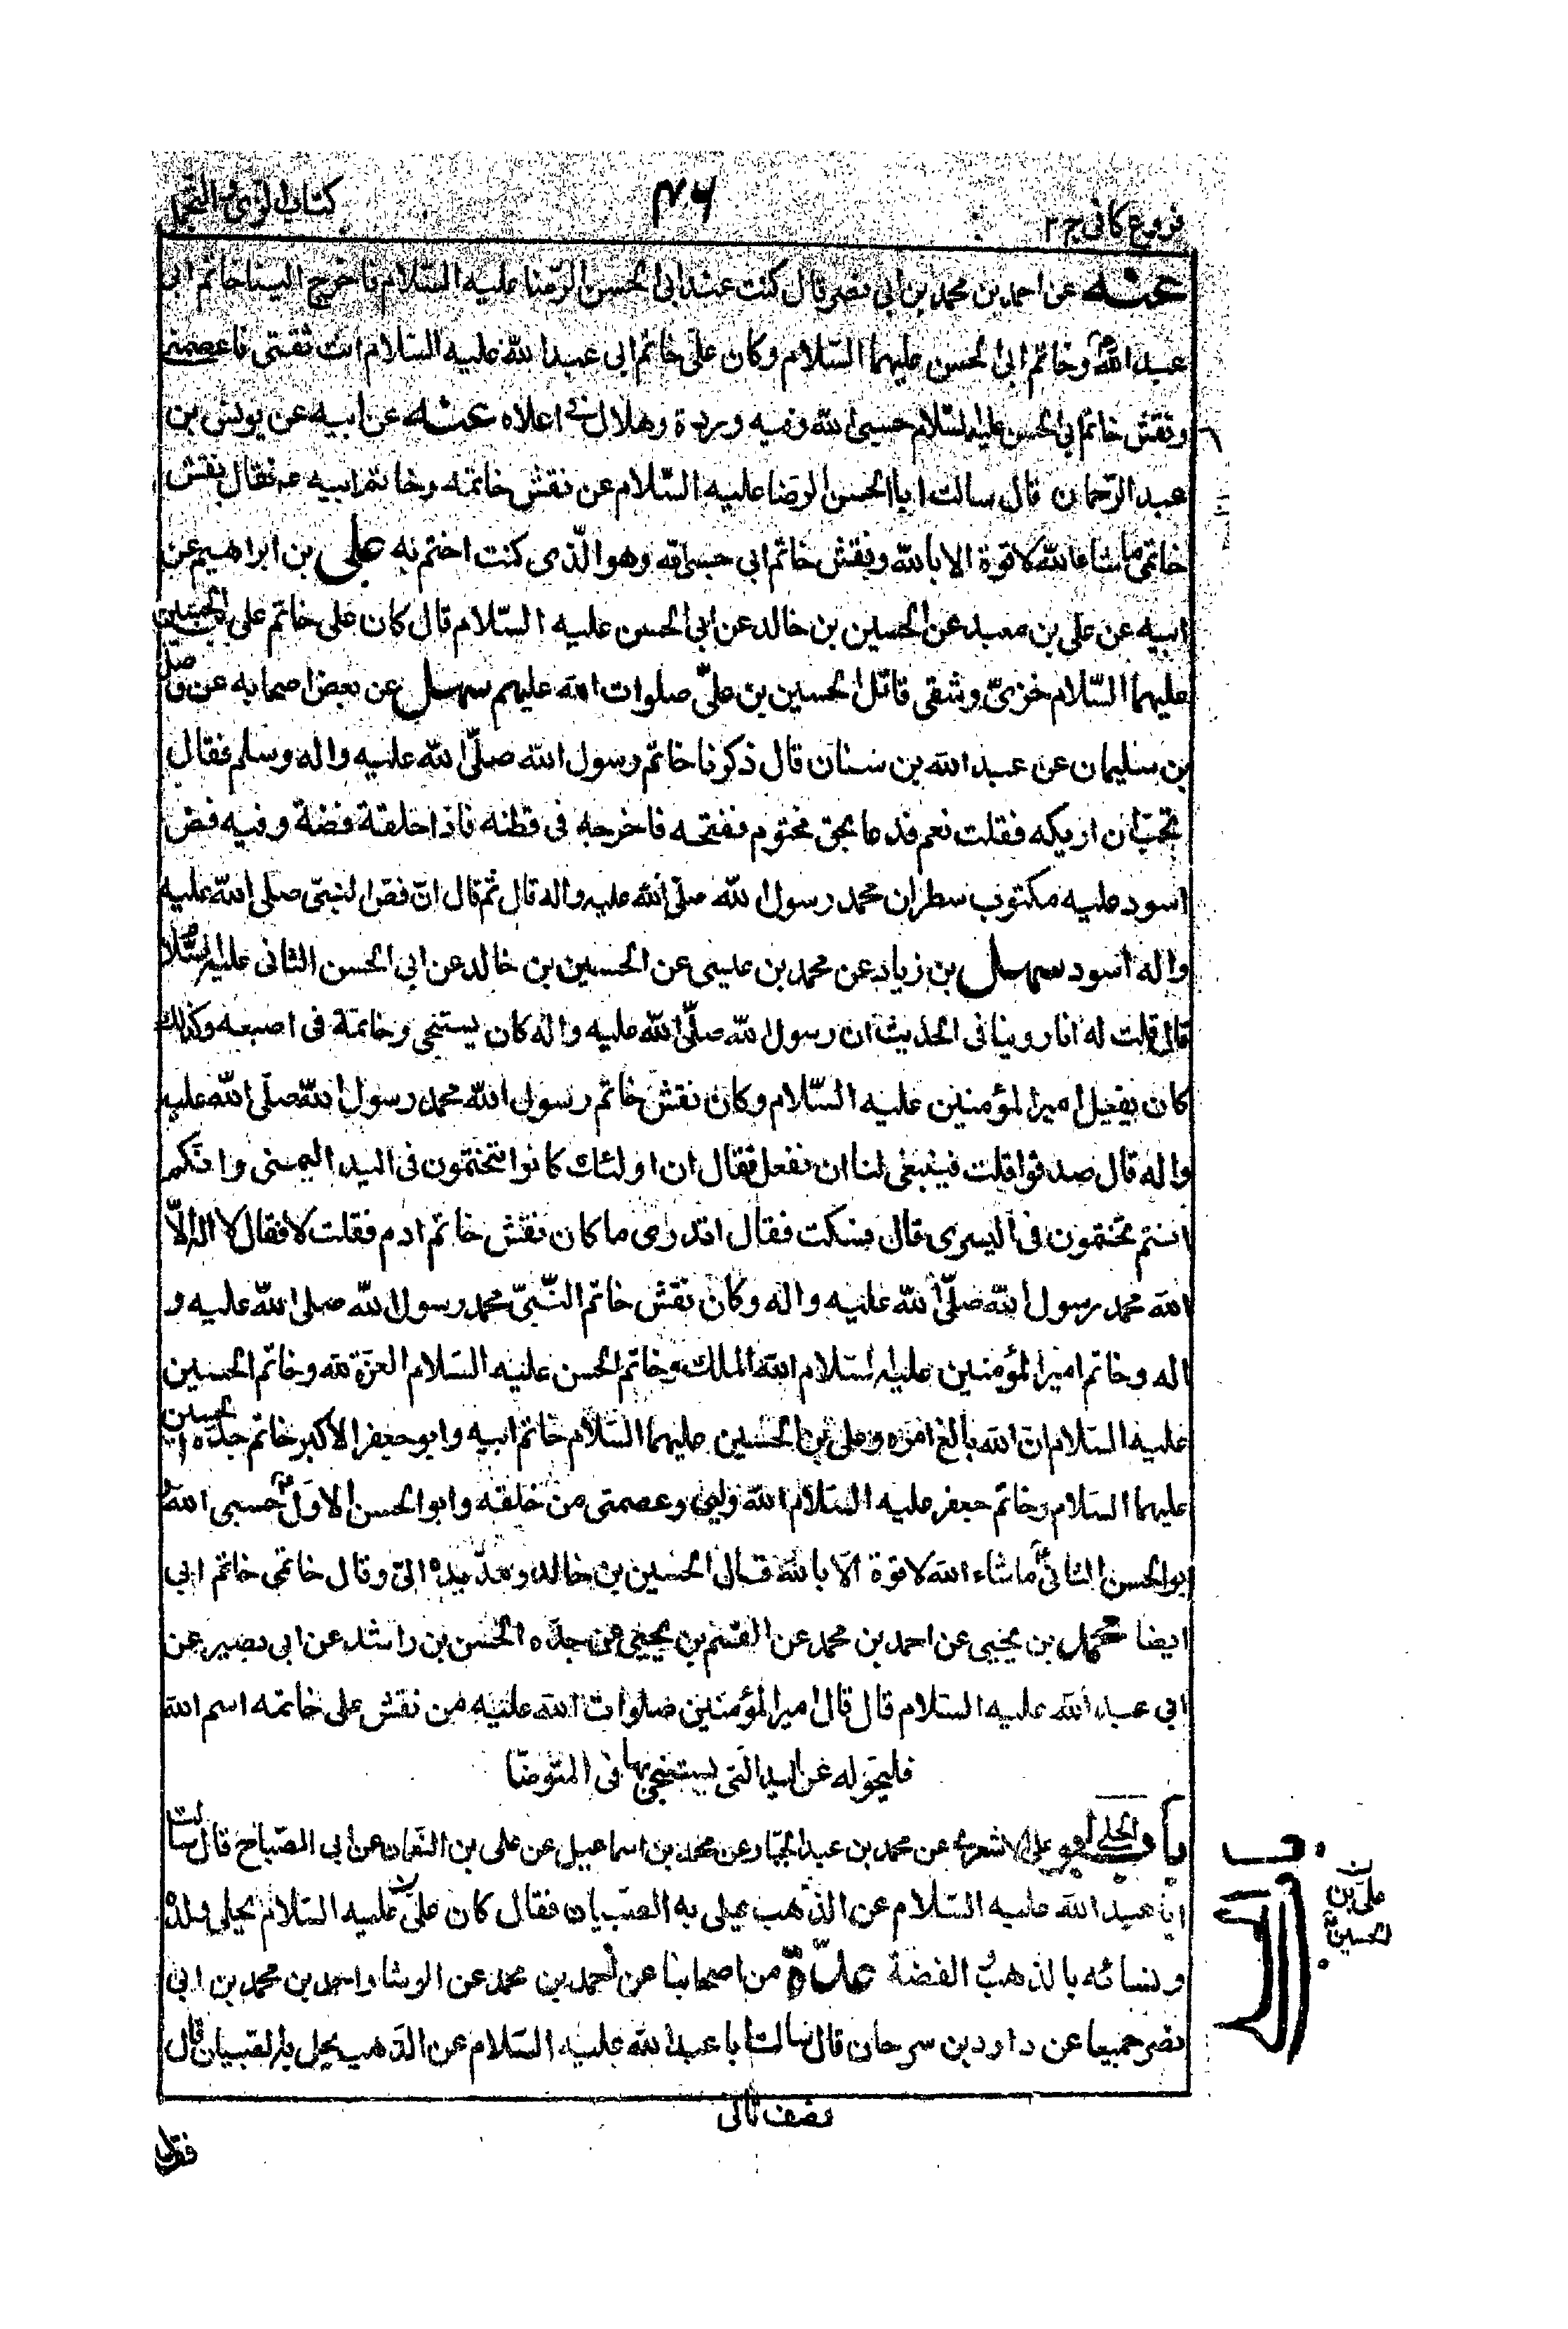 فروع كافى ج ٢
٣٤
كتاب الزى والتجمل
عنه عن احمد بن محمد بن ابى نصر قال كنت عند ابى الحسن الرضا عليه السلام فاخرج الينا خاتم ابى
عبد الله وخاتم ابى الحسن عليهما السلام وكان على خاتم ابى عبد الله عليه السلام انت ثقتى فاعصمنى
ونقش خاتم ابى الحسن عليه السلام حسبى الله وفيه وردة وهلال فى اعلاه عنه عن ابيه عن يونس بن
عبد الرحمان قال سالت ابا الحسن الرضا عليه السلام عن نقش خاتمه وخاتم ابيه ع فقال نقش
خاتمى ماشاء الله لا قوة الا بالله ونقش خاتم ابى حسبى الله وهو الذى كنت اختم به على بن ابراهيم عن
ابيه عن على بن معبد عن الحسين بن خالد عن ابى الحسن عليه السلام قال كان على خاتم على بن الحسين
عليهما السلام خزى وشقى قاتل الحسين بن على صلوات الله عليهم سهل عن بعض اصحابه عن واصل
بن سليمان عن عبد الله بن سنان قال ذكرنا خاتم رسول الله صلى الله عليه واله وسلم فقال
تحب ان اريكه فقلت نعم فدعا بحق مختوم ففتحه فاخرجه فى قطنه فاذا حلقة فضة وفيه فص
اسود عليه مكتوب سطران محمد رسول الله صلى الله عليه واله قال ثم قال ان فص النبى صلى الله عليه
واله اسود سهل بن زياد عن محمد بن عيسى عن الحسين بن خالد عن ابى الحسن الثانى عليه السلام
قال قلت له انا روينا فى الحديث ان رسول الله صلى الله عليه واله كان يستنجى وخاتمه فى اصبعه وكذلك
كان يفعل امير المؤمنين عليه السلام وكان نقش خاتم رسول الله محمد رسول الله صلى الله عليه
واله قال صدقوا قلت فينبغى لنا ان نفعل فقال ان اولئك كانوا يتختمون فى اليد اليمنى وانكم
انتم تختمون فى اليسرى قال فسكت فقال اتدرى ما كان نقش خاتم ادم فقلت لا فقال لا اله الا
الله محمد رسول الله صلى الله عليه واله وكان نقش خاتم النبى محمد رسول الله صلى الله عليه و
اله وخاتم امير المؤمنين عليه السلام الله الملك وخاتم الحسن عليه السلام العزة لله وخاتم الحسين
عليه السلام ان الله بالغ امره وعلى بن الحسين عليهما السلام خاتم ابيه وابو جعفر الاكبر خاتم جده الحسين
عليهما السلام وخاتم جعفر عليه السلام الله وليى وعصمتى من خلقه وابو الحسن الاول حسبى الله
ابو الحسن الثانى ماشاء الله لا قوة الا بالله قال الحسين بن خالد ومد يده الى وقال خاتمى خاتم ابى
ايضا محمد بن يحيى عن احمد بن محمد عن القسم بن يحيى عن جده الحسن بن راشد عن ابى بصير عن
ابى عبد الله عليه السلام قال قال امير المؤمنين صلوات الله عليه من نقش على خاتمه اسم الله
فليحوله عن اليد التى يستنجى بها فى المتوضا
باب الحلى ابو على الاشعرى عن محمد بن عبد الجبار عن محمد بن اسماعيل عن على بن النعمان عن ابى الصباح قال سالت
ابا عبد الله عليه السلام عن الذهب يحلى به الصبيان فقال كان على عليه السلام يحلى ولده
ونسائه بالذهب والفضة عدة من اصحابنا عن احمد بن محمد عن الوشا واحمد بن محمد بن ابى
نصر جميعا عن داود بن سرحان قال سالت ابا عبد الله عليه السلام عن الذهب يحلى به الصبيان قال
باب الحلى
على بن
الحسين
نصف ثانى
فقال